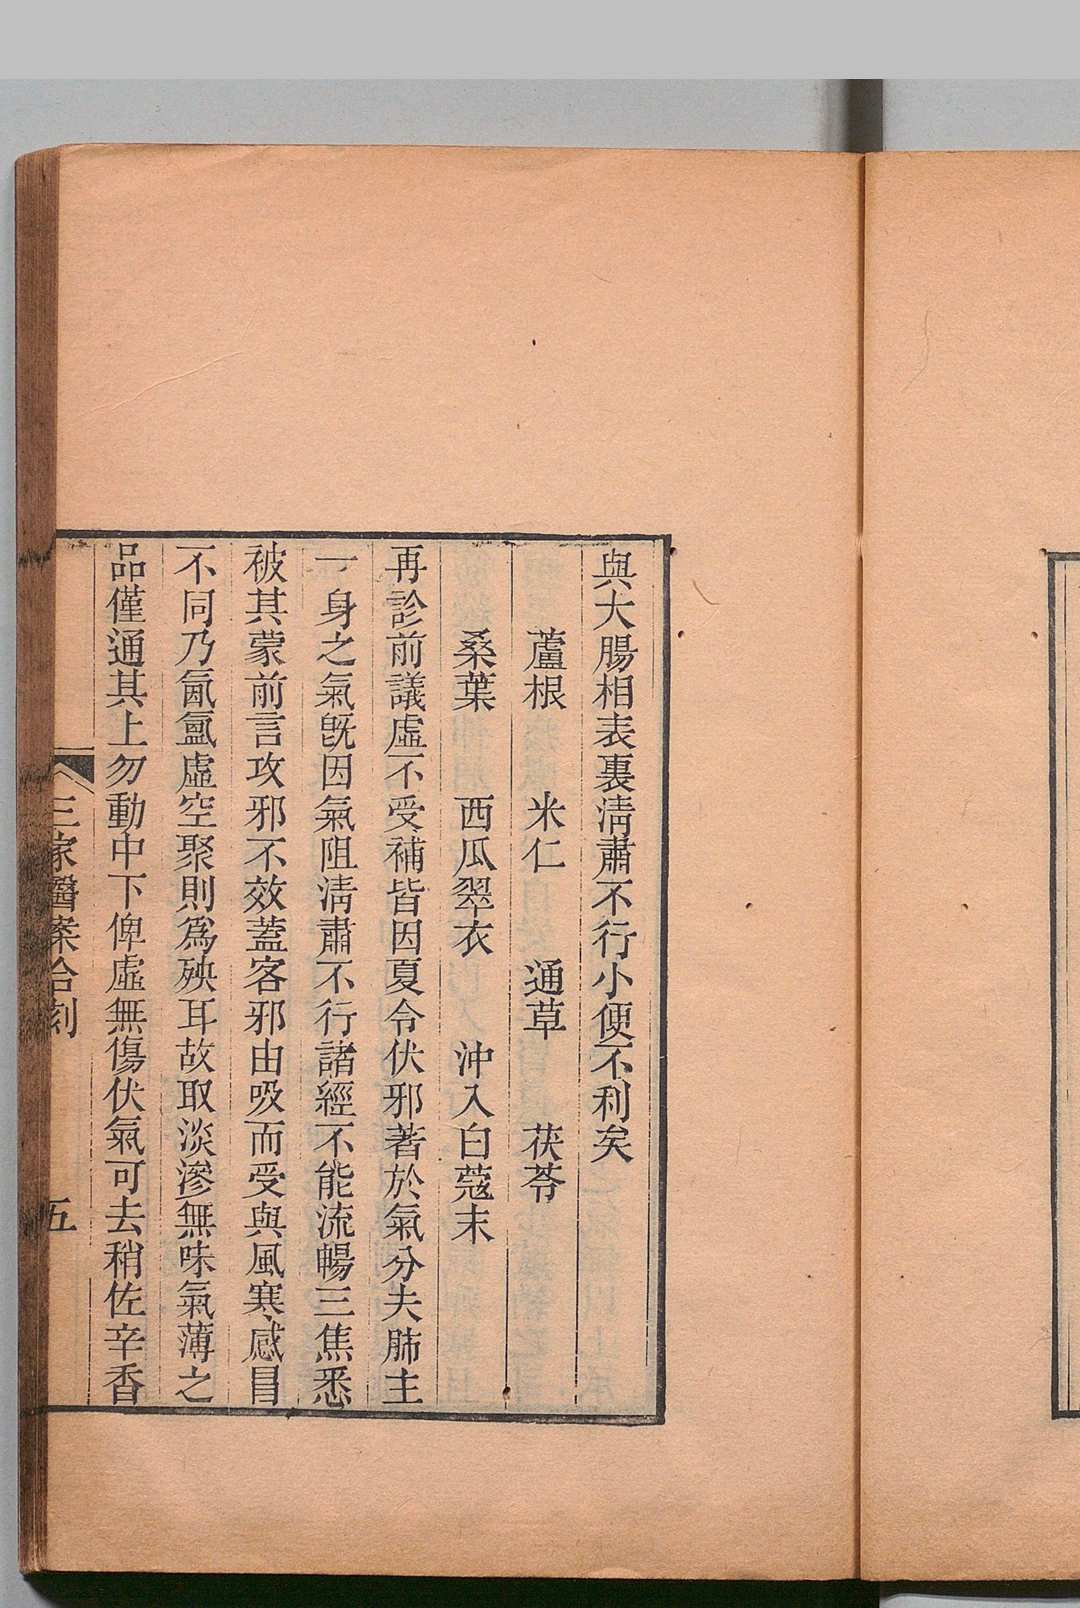 與大腸相表裏淸肅不行小便不利矣
蘆根　米仁　通草　茯苓
桑葉　西瓜翠衣　沖入白蔻末
再診前議虛不受補皆因夏令伏邪著於氣分夫肺主
一身之氣旣因氣阻淸肅不行諸經不能流暢三焦悉
被其蒙前言攻邪不效蓋客邪由吸而受與風寒感冒
不同乃氤氳虛空聚則爲殃耳故取淡滲無味氣薄之
品僅通其上勿動中下俾虛無傷伏氣可去稍佐辛香
三家醫案合刻
五